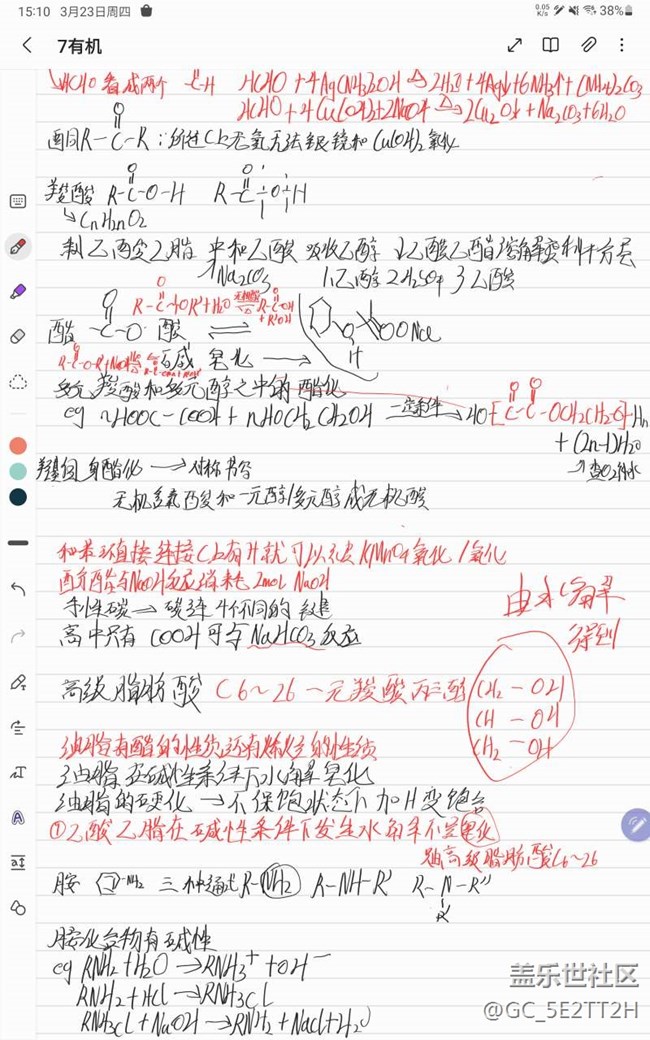 15:10 3月23日周四
0.05 K/s
38%
7有机
HCHO看成两个 C-H HCHO + 4Ag(NH3)2OH △ 2H2O + 4Ag↓ + 6NH3↑ + (NH4)2CO3
HCHO + 4Cu(OH)2 + 2NaOH △ 2Cu2O↓ + Na2CO3 + 6H2O
O
酮 R-C-R : 邻过C上无氢无法银镜和Cu(OH)2氧化
羧酸 R-C-O-H R-C-O-H
→ CnH2nO2
制乙酸乙脂 中和乙酸 吸收乙醇 ↓乙酸乙酯溶解度利于分层
Na2CO3 1.乙醇 2 H2SO4 3乙酸
R-C-OR' + H2O 无机酸 R-C-OH + R'OH
酯 -C-O- 酸 ⇌
碱 皂化 →
多元羧酸和多元醇之中的酯化
eg nHOOC-COOH + nHOCH2CH2OH 一定条件 HO[C-C-OCH2CH2O]nH
+ (2n-1)H2O
羟自身酯化 → 对称书写
无机含氧酸和一元醇/多元醇成无机酸
和苯环直接连接C上有H就可以被KMnO4氧化/氧化
酚酯与NaOH反应消耗2mol NaOH
手性碳 → 碳连4个不同的键
高中只有COOH可与NaHCO3反应
由水解
得到
高级脂肪酸 C6~26 一元羧酸丙三醇
CH2-OH
CH-OH
CH2-OH
油脂有酯的性质还有烯烃的性质
油脂在碱性条件下水解皂化
油脂的硬化 → 不保饱状态下加H变饱合
①乙酸乙脂在碱性条件下发生水解不是皂化
高级脂肪酸C6~26
胺 -NH2 三种通式 R-NH2 R-NH-R' R-N-R''
R'
胺化合物有碱性
eg RNH2 + H2O → RNH3+ + OH-
RNH2 + HCl → RNH3Cl
RNH3Cl + NaOH → RNH2 + NaCl + H2O
盖乐世社区
@GC_5E2TT2H